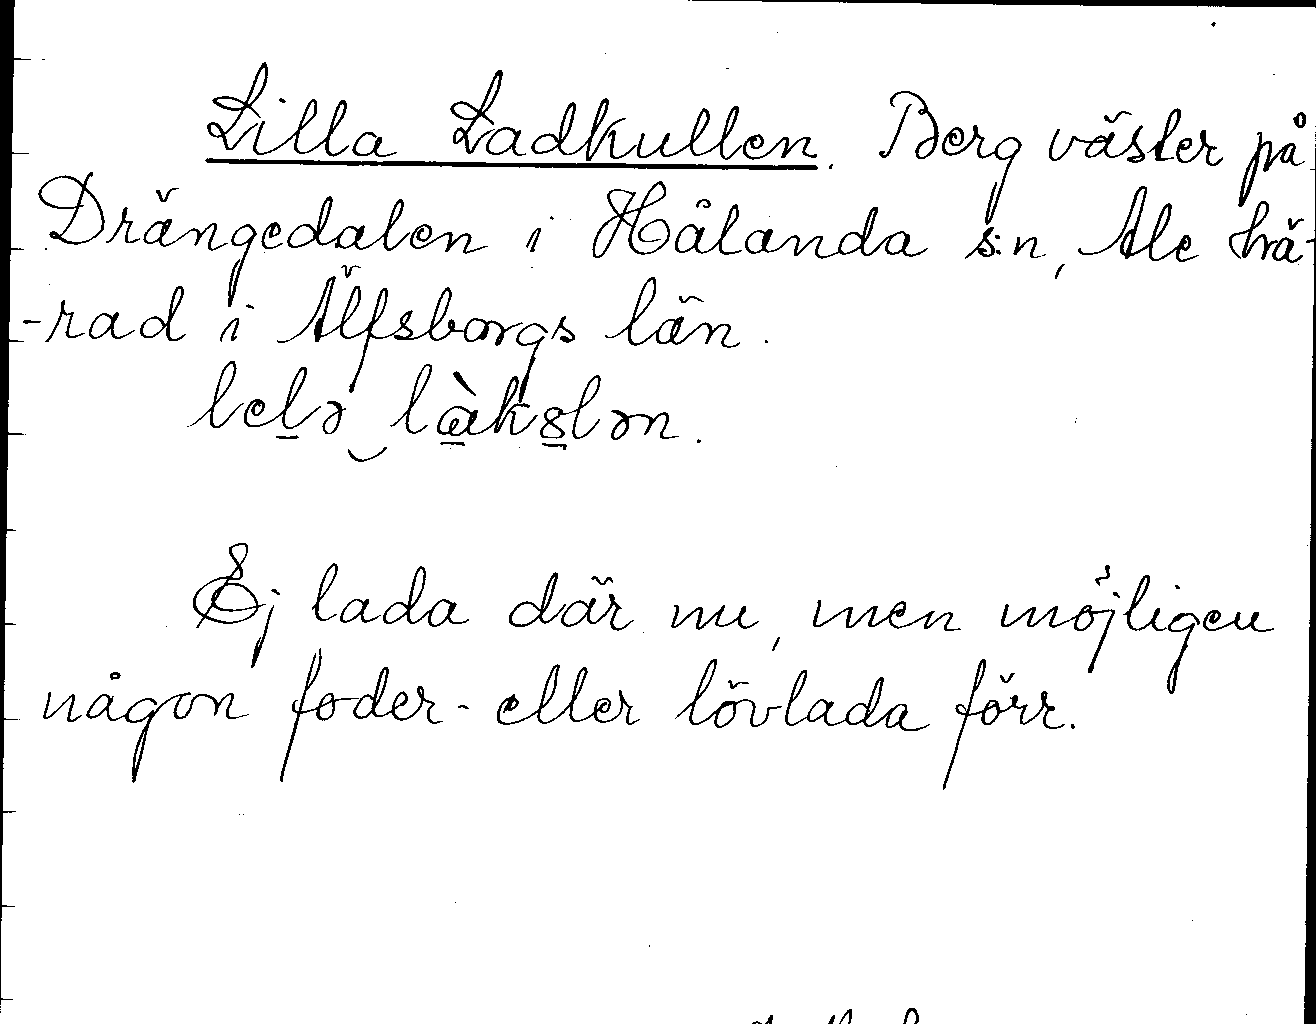 Lilla Ladkullen. Berg väster på
Drängedalen i Hålanda s:n, Ale hä-
-rad i Älfsborgs län.
Ej lada där nu, men möjligen
någon foder- eller lövlada förr.